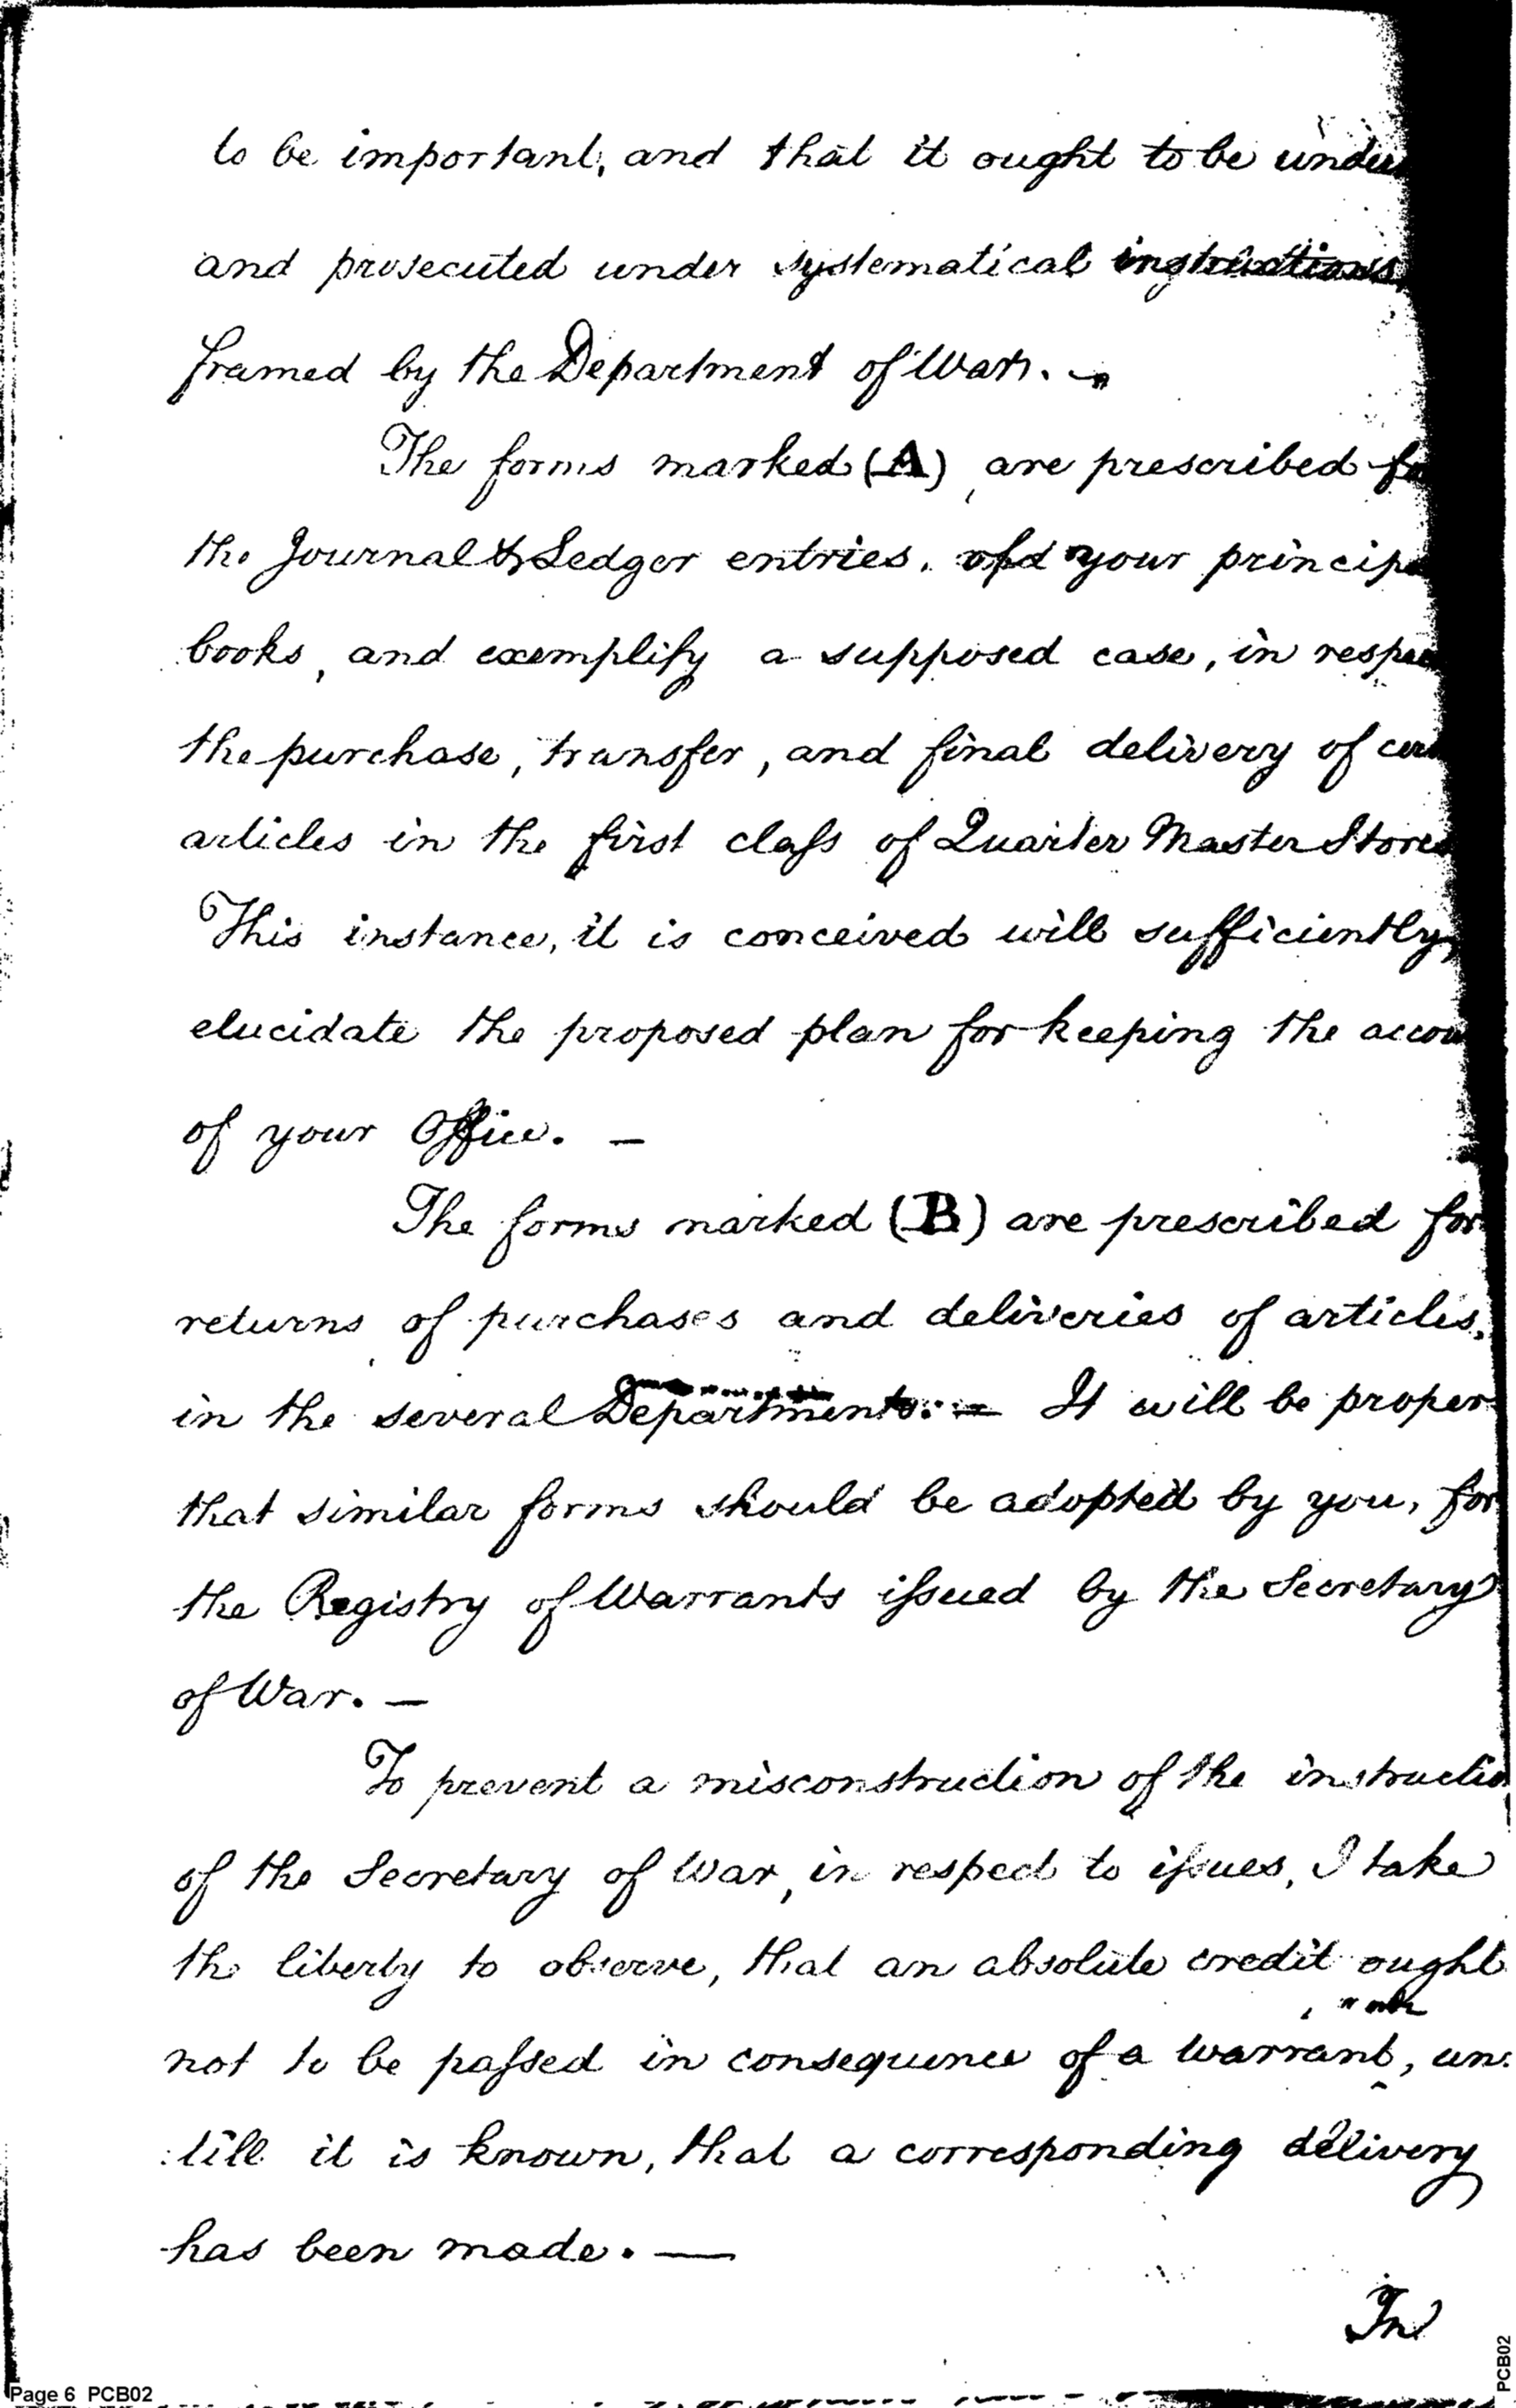 to be important, and that it ought to be under
and prosecuted under systematical instructions
framed by the Department of War. —
The forms marked (A) are prescribed fo
the Journal & Ledger entries, of your princip
books, and exemplify a supposed case, in respec
the purchase, transfer, and final delivery of cer
articles in the first class of Quarter Master Stores
This instance, it is conceived will sufficiently,
elucidate the proposed plan for keeping the accou
of your Office. —
The forms marked (B) are prescribed for
returns of purchases and deliveries of articles,
in the several Departments. — It will be proper
that similar forms should be adopted by you, for
the Registry of Warrants issued by the Secretary
of War. —
To prevent a misconstruction of the instructio
of the Secretary of War, in respect to issues, I take
the liberty to observe, that an absolute credit ought
not to be passed in consequence of a warrant, un:
:till it is known, that a corresponding delivery
has been made. —
In
Page 6 PCB02
PCB02